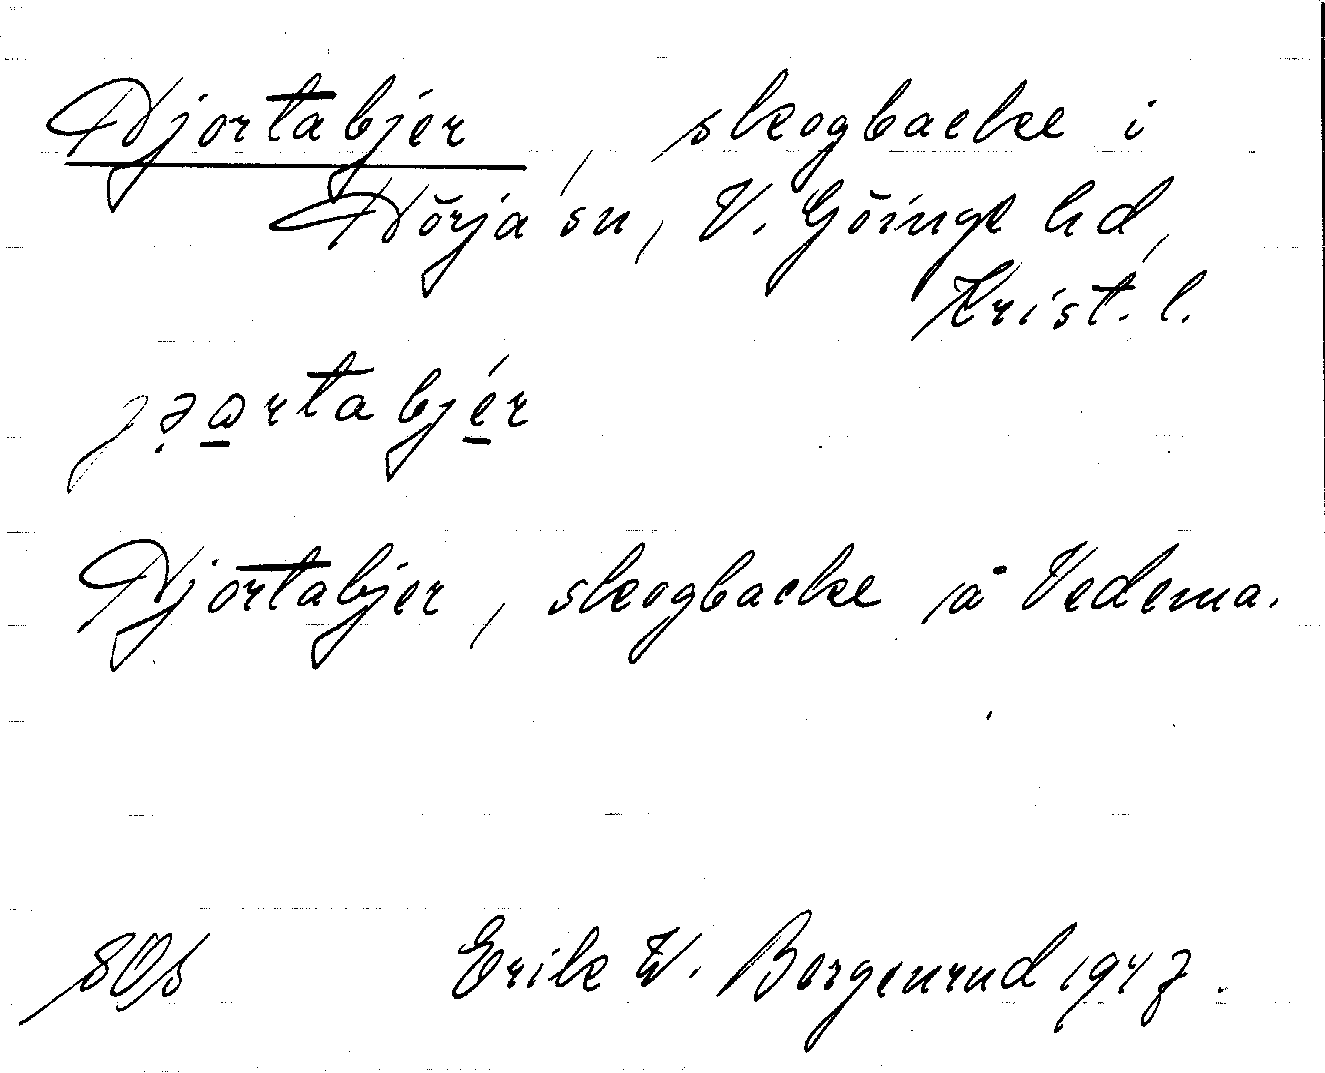 Hjortabjer, skogbacke i
Hörja sn, V. Göinge hd,
Krist. l.
Hjortabjer, skogbacke å Vedema.
Erik W. Borgenrud 1947.